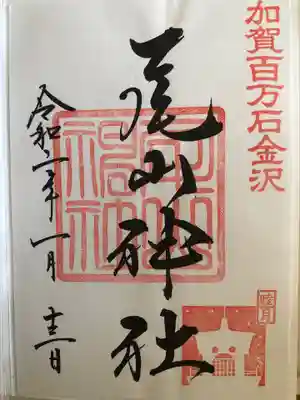 加賀百万石金沢
尾山神社
尾山神社
睦月
令和二年一月 日